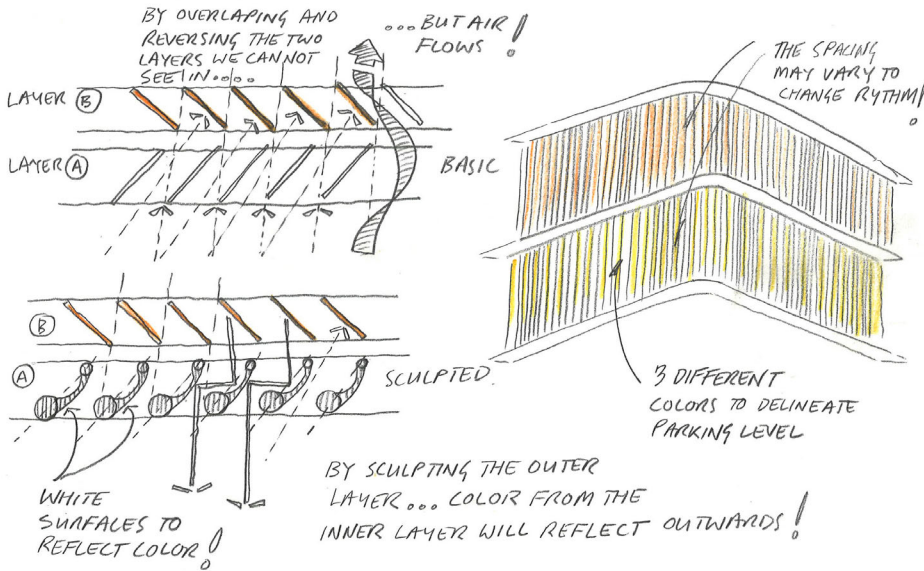 BY OVERLAPING AND
REVERSING THE TWO
LAYERS WE CANNOT
SEE IN....
...BUT AIR
FLOWS !
LAYER B
LAYER A
BASIC
THE SPACING
MAY VARY TO
CHANGE RYTHM!
B
A
SCULPTED.
3 DIFFERENT
COLORS TO DELINEATE
PARKING LEVEL
WHITE
SURFACES TO
REFLECT COLOR!
BY SCULPTING THE OUTER
LAYER... COLOR FROM THE
INNER LAYER WILL REFLECT OUTWARDS!